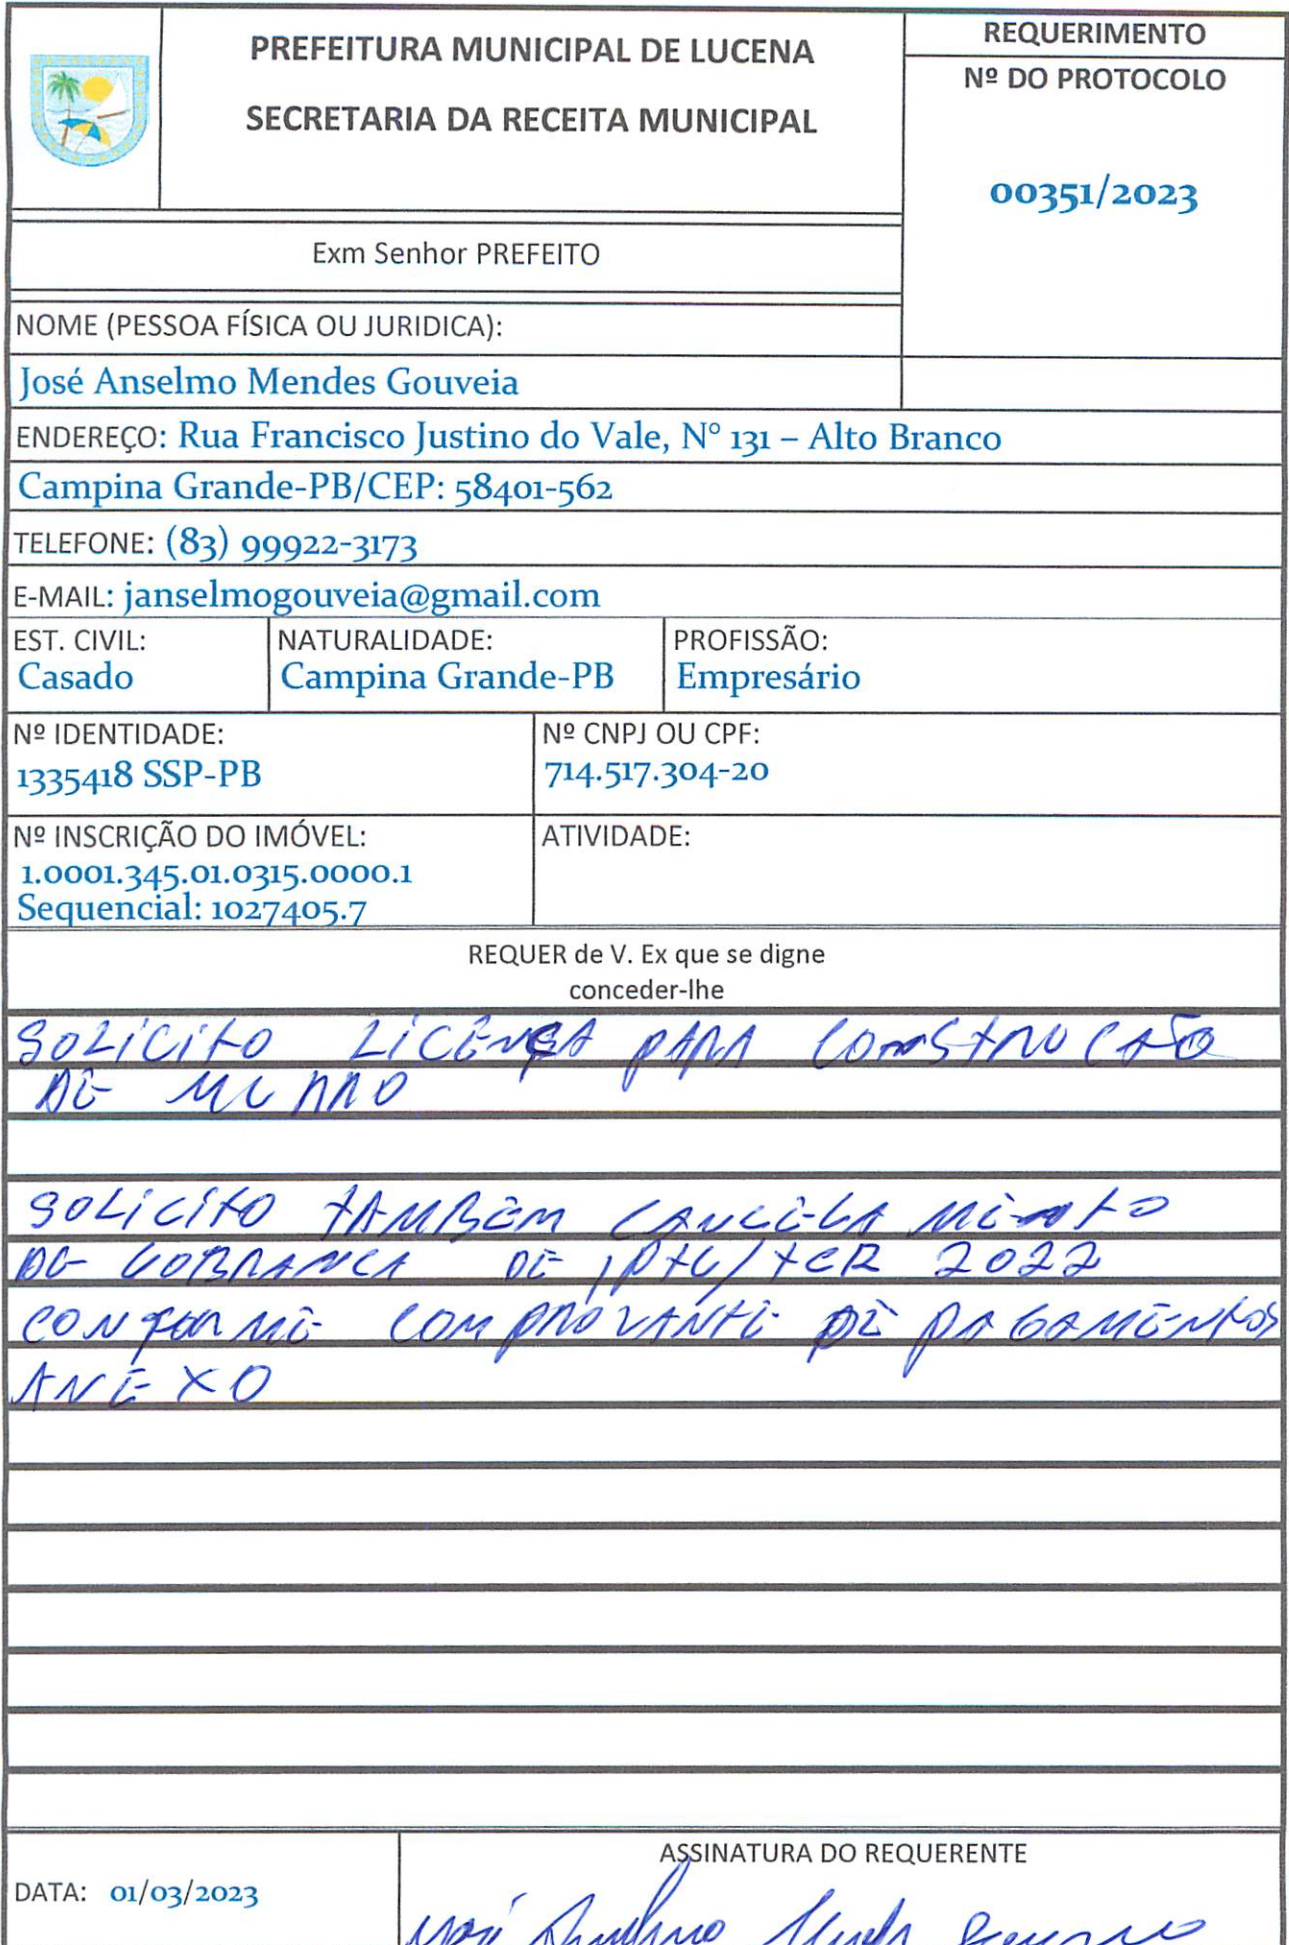 PREFEITURA MUNICIPAL DE LUCENA
SECRETARIA DA RECEITA MUNICIPAL
REQUERIMENTO
Nº DO PROTOCOLO
00351/2023
Exm Senhor PREFEITO
NOME (PESSOA FÍSICA OU JURIDICA):
José Anselmo Mendes Gouveia
ENDEREÇO: Rua Francisco Justino do Vale, N° 131 – Alto Branco
Campina Grande-PB/CEP: 58401-562
TELEFONE: (83) 99922-3173
E-MAIL: janselmogouveia@gmail.com
EST. CIVIL:
Casado
NATURALIDADE:
Campina Grande-PB
PROFISSÃO:
Empresário
Nº IDENTIDADE:
1335418 SSP-PB
Nº CNPJ OU CPF:
714.517.304-20
Nº INSCRIÇÃO DO IMÓVEL:
1.0001.345.01.0315.0000.1
Sequencial: 1027405.7
ATIVIDADE:
REQUER de V. Ex que se digne
conceder-lhe
SOLICITO LICENÇA PARA CONSTRUCÃO
DE MURRO
SOLICITO TAMBÉM CANCELAMENTO
DE COBRANCA DE IPTU/TCR 2022
CONFORME COMPROVANTE DE PAGAMENTOS
ANEXO
DATA: 01/03/2023
ASSINATURA DO REQUERENTE
José Anselmo Mendes Gouveia